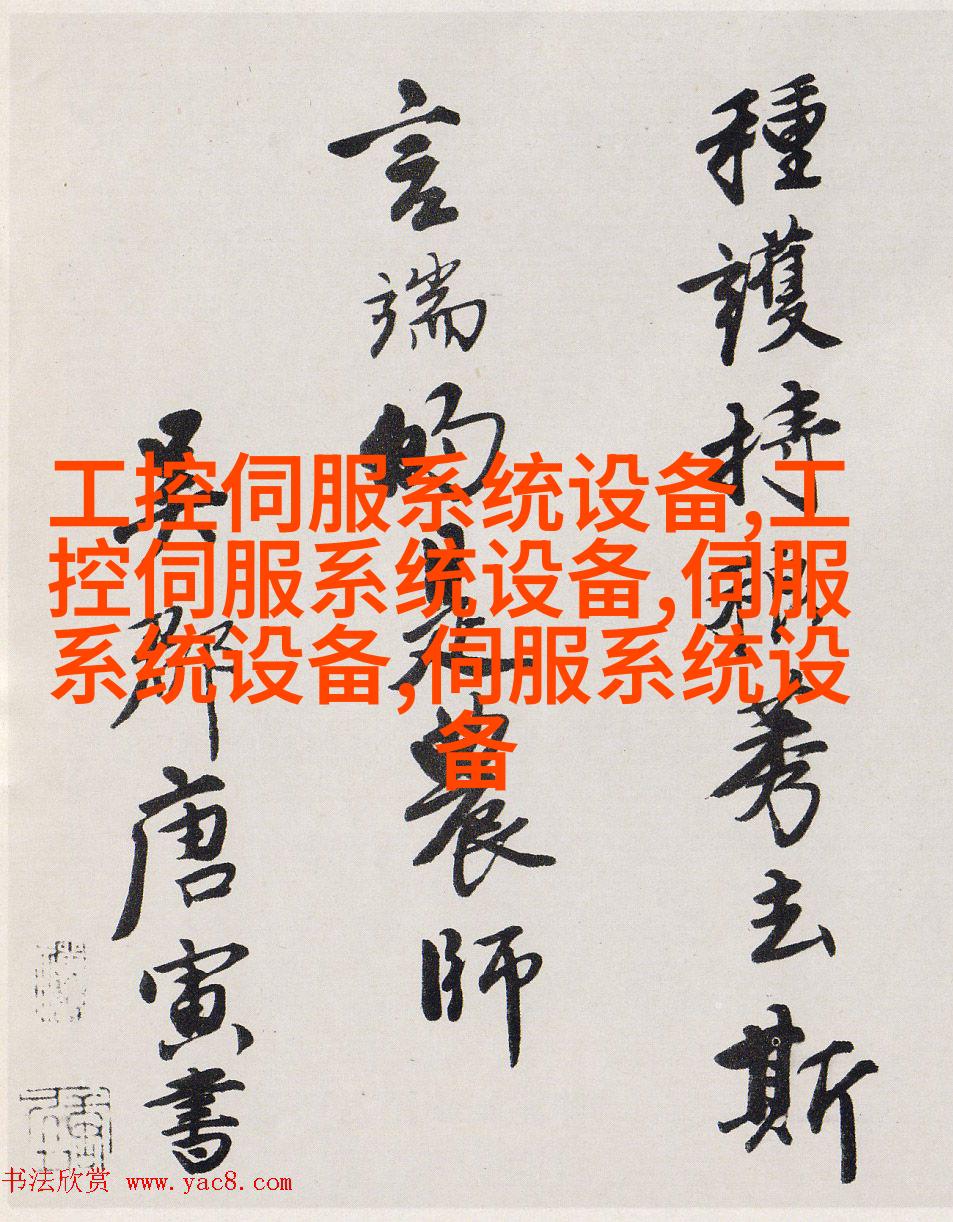 工控伺服系统设备,工
控伺服系统设备,伺服
系统设备,伺服系统设
备
種護持莠去斯
言端的是農師
吳郡唐寅書
书法欣赏 www.yac8.com